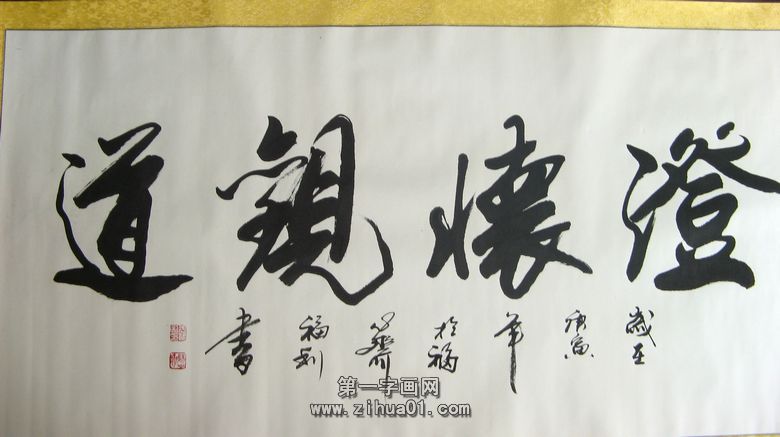 澄懷觀道
歲在
庚寅
年
於福
齋
福利
書
第一字画网
www.zihua01.com